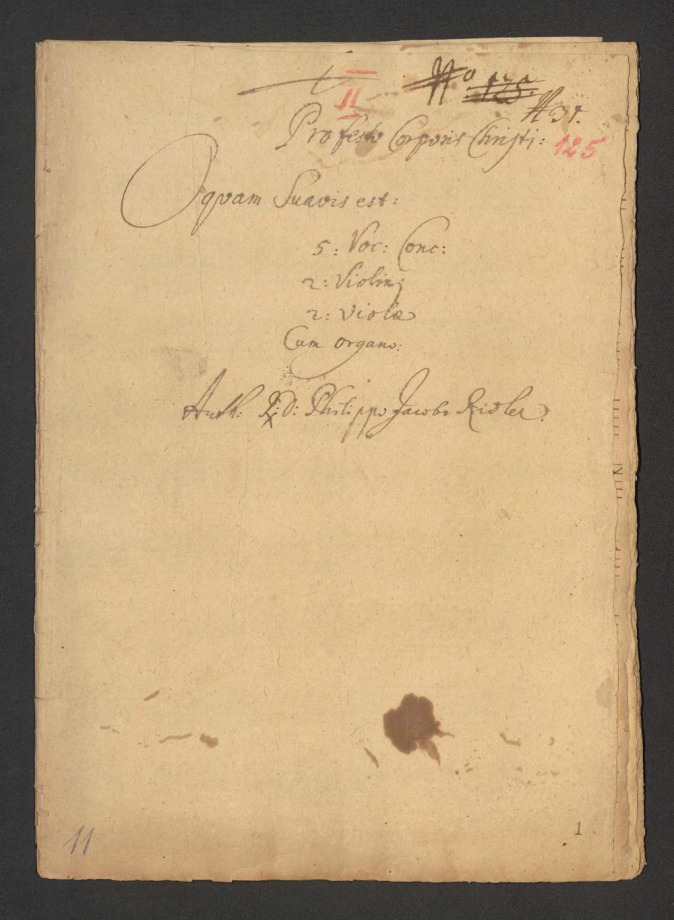 No 125.
II
No 31.
Pro festo Corporis Christi: 125
O quam Suavis est:
5: Voc: Conc:
2: Violin:
2: Violæ
Cum Organo:
Auth: R: D: Philippo Jacobo Ridler.
11
1